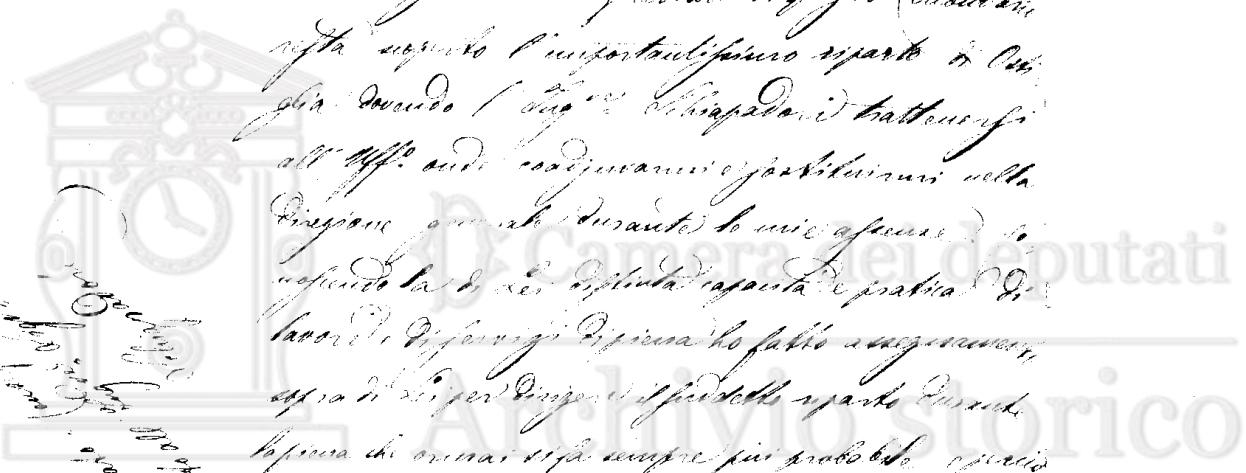 resta scoperto l'importantissimo riparto di Osti
glia dovendo l'Ingre Schiapadori trattenersi
all' Uffo onde coadjuvarmi e sostituirmi nella
Direzione generale durante le mie assenze. Co
noscendo la di Lei distinta capacità e pratica di
lavori e di servizi di piena ho fatto assegnamento
sopra di Lei per dirigere il suddetto riparto durante
la piena che ormai si fa sempre più probabile e perciò
Camera dei deputati
Archivio storico